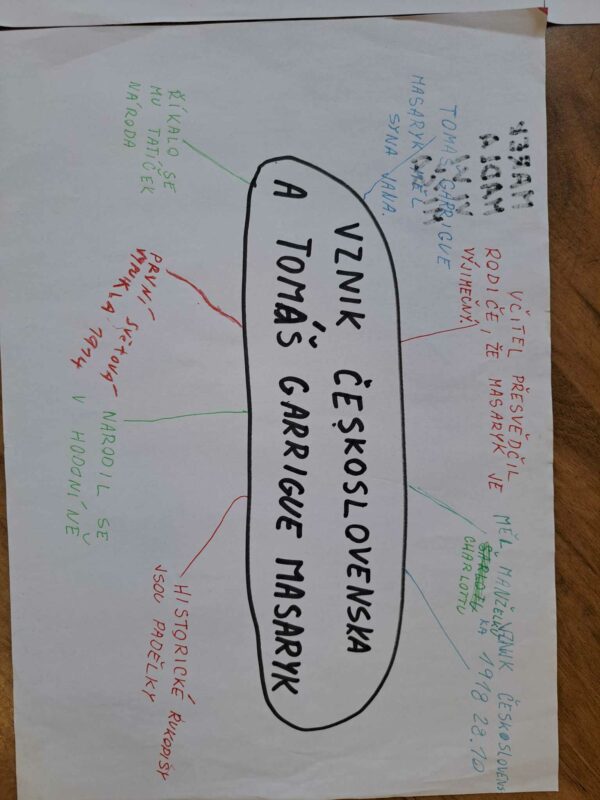 VZNIK ČESKOSLOVENSKA
A TOMÁŠ GARRIGUE MASARYK
TOMÁŠ GARRIGUE
MASARYK MĚL
SYNA JANA.
UČITEL PŘESVĚDČIL
RODIČE, ŽE MASARYK JE
VÝJIMEČNÝ.
MĚL MANŽELKU
CHARLOTTU
VZNIK ČESKOSLOVENS
KA 1918 28.10
ŘÍKALO SE
MU TATÍČEK
NÁRODA
PRVNÍ SVĚTOVÁ
VZNIKLA 1914
NARODIL SE
V HODONÍNĚ
HISTORICKÉ RUKOPISY
JSOU PADĚLKY